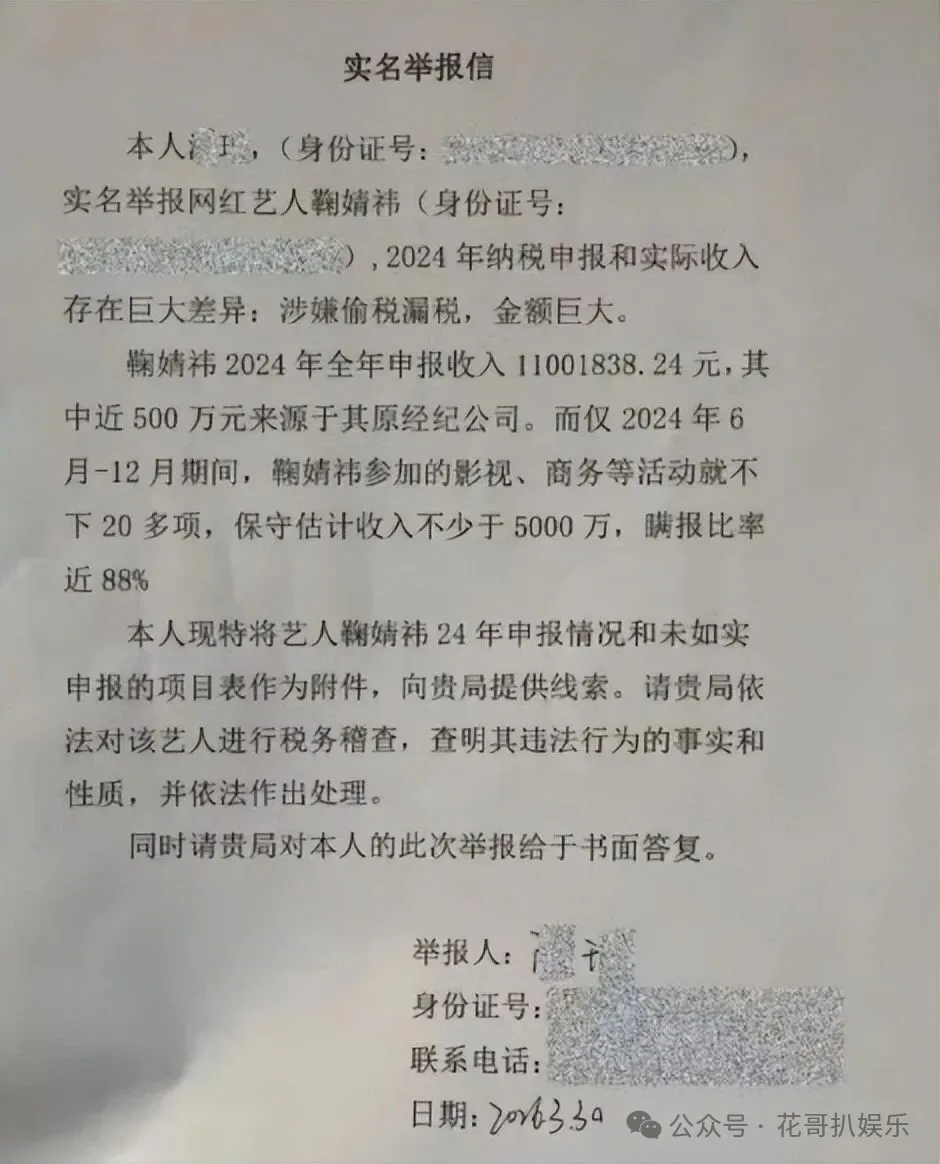 实名举报信
本人，（身份证号：），
实名举报网红艺人鞠婧祎（身份证号：
），2024 年纳税申报和实际收入
存在巨大差异：涉嫌偷税漏税，金额巨大。
鞠婧祎 2024 年全年申报收入 11001838.24 元，其
中近 500 万元来源于其原经纪公司。而仅 2024 年 6
月-12 月期间，鞠婧祎参加的影视、商务等活动就不
下 20 多项，保守估计收入不少于 5000 万，瞒报比率
近 88%
本人现特将艺人鞠婧祎 24 年申报情况和未如实
申报的项目表作为附件，向贵局提供线索。请贵局依
法对该艺人进行税务稽查，查明其违法行为的事实和
性质，并依法作出处理。
同时请贵局对本人的此次举报给于书面答复。
举报人：
身份证号：
联系电话：
日期：2026.3.30
公众号·花哥扒娱乐